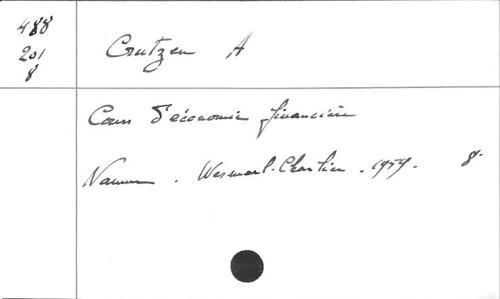 488
201
8
Crutzen A
Cours d'économie financière
Namur . Wesmael-Charlier . 1959. 8°